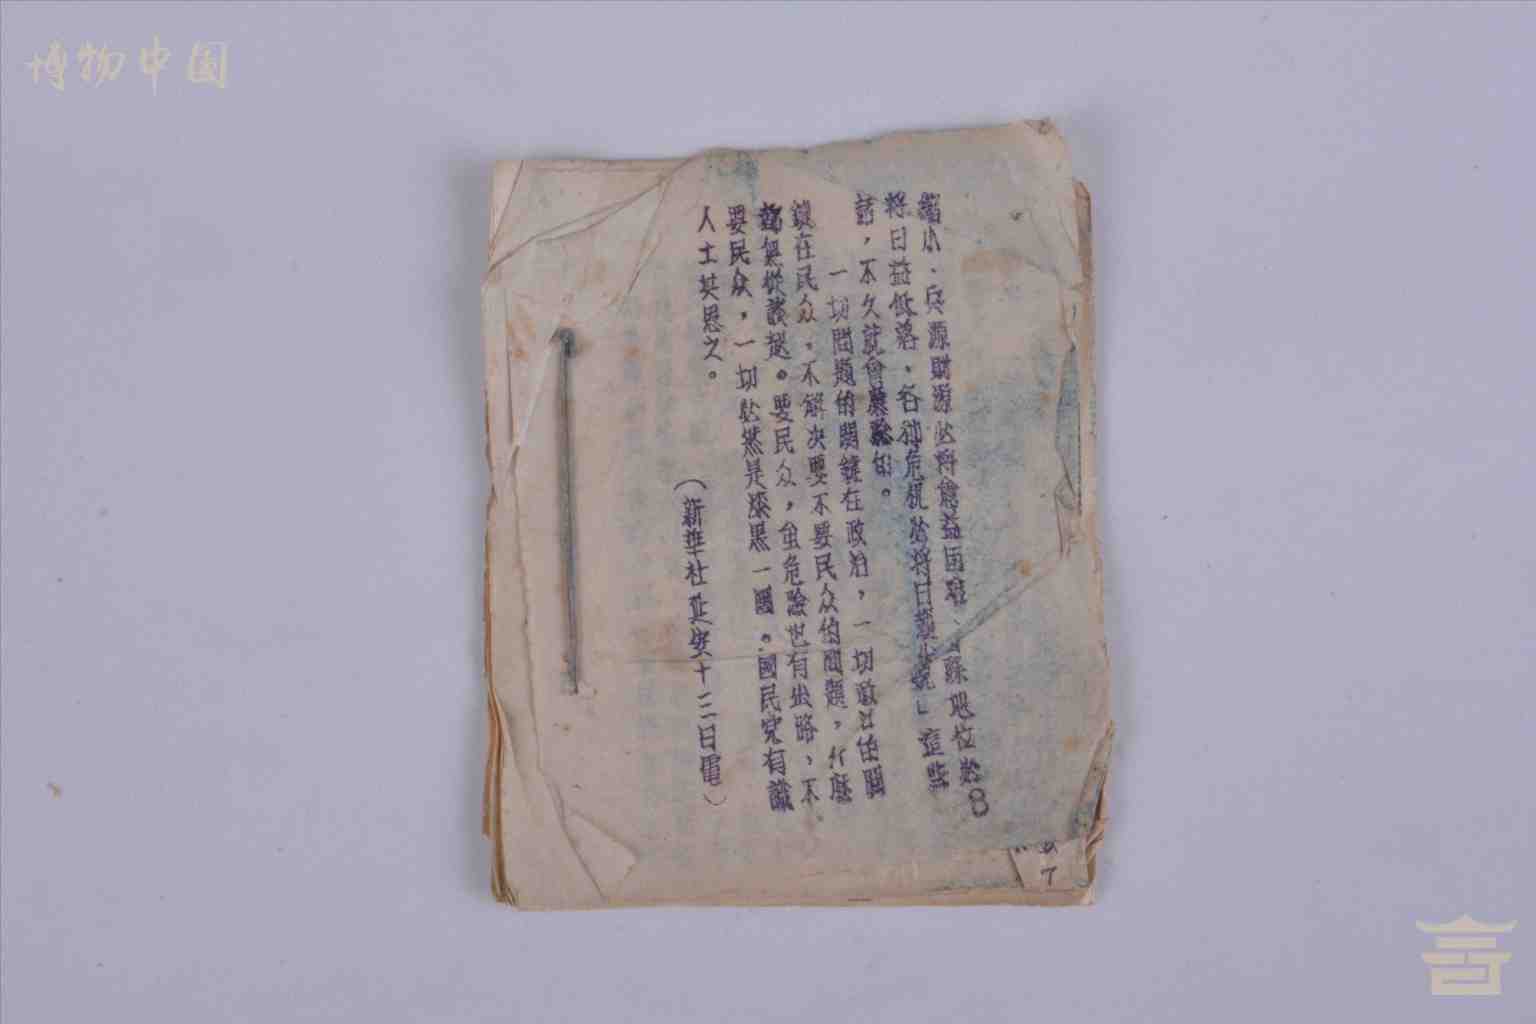 博物中国
縮小、兵源財源必将愈益困难、国际地位必
将日益低落、各种危机必将日益严重」這些
話，不久就會應驗的。
一切問題的関鍵在政治，一切政治的関
鍵在民众，不解决要不要民众的問題，什麽
都無從談起。要民众，虽危險也有出路，不
要民众，一切必然是漆黑一團。國民党有識
人士其思之。
（新華社延安十二日電）
8
7